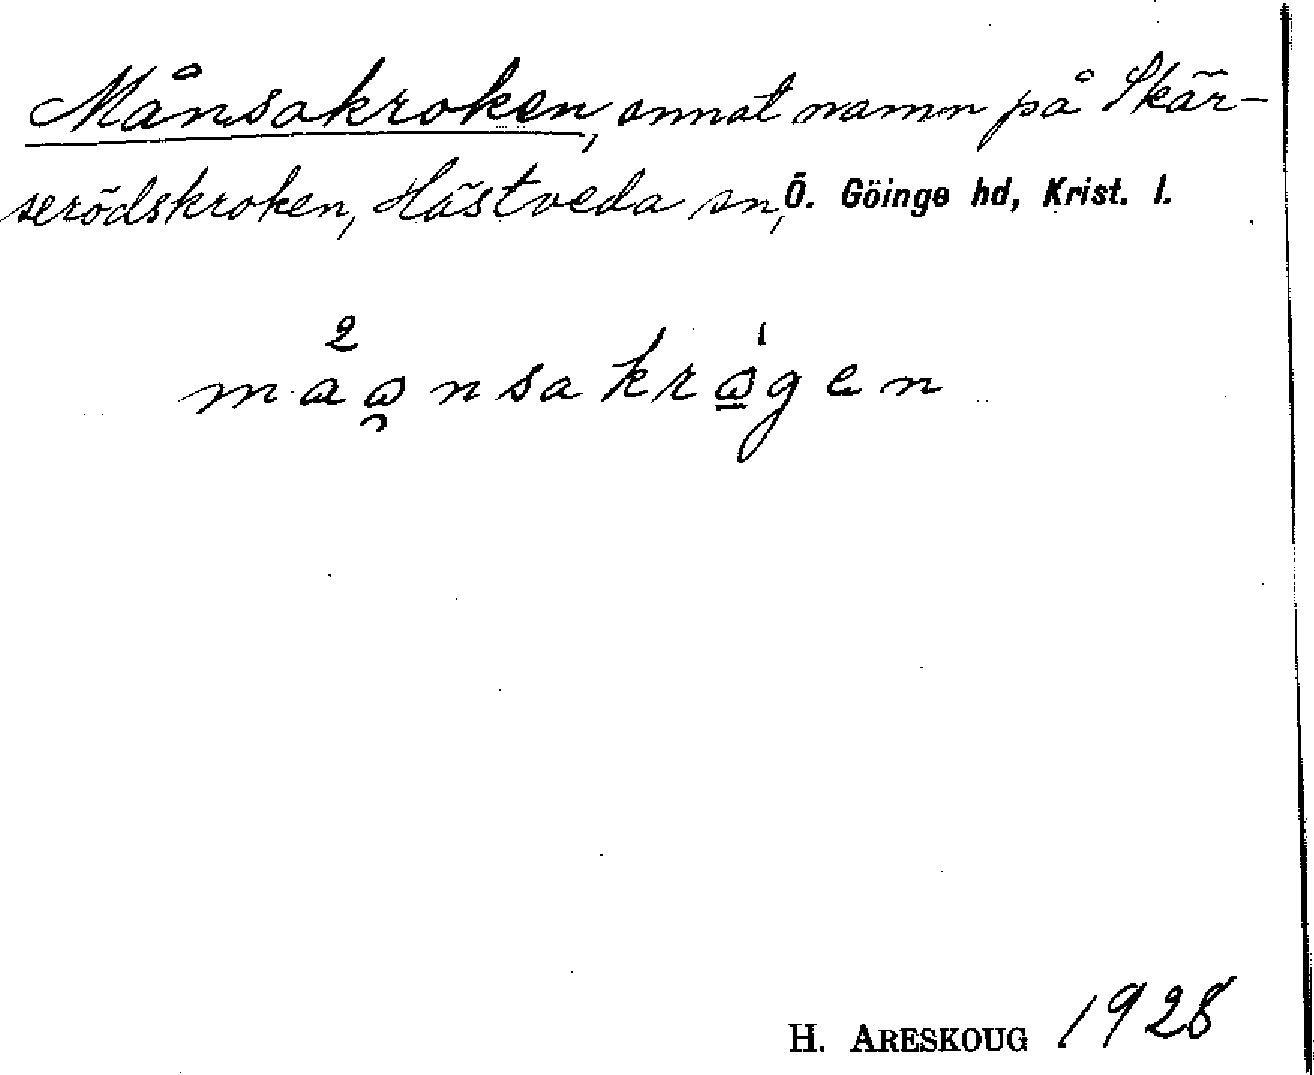 Månsakroken, annat namn på Skär-
serödskroken, Hästveda sn, Ö. Göinge hd, Krist. l.
H. ARESKOUG 1928